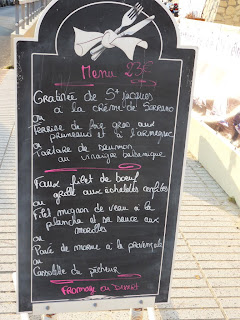 Menu 23€
Gratinée de St Jacques
à la crème de Serrano
ou
Terrine de foie gras aux
pruneaux et à l'armagnac
ou
Tartare de saumon
au vinaigre balsamique
Faux filet de boeuf
grillé aux échalotes confites
ou
Filet mignon de veau à la
plancha et sa sauce aux
morilles
ou
Pavé de morue à la provençale
ou
Cassolette du pêcheur
Fromage ou Dessert